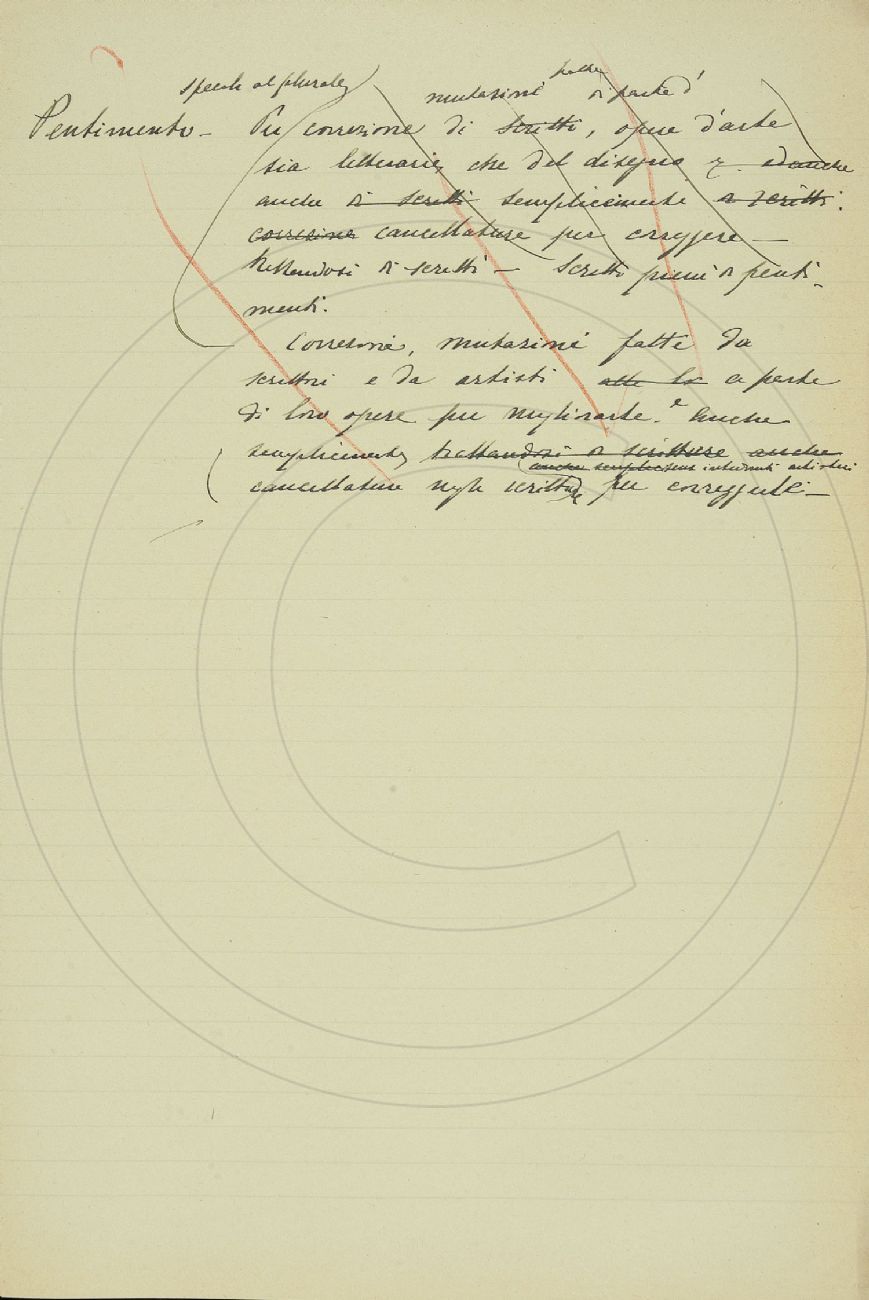 specie al plurale
mutazioni fatte di parte d'
Pentimento - Per correzione di scritti, opere d'arte
sia letterarie, che del disegno ed anche
anche di scritti semplicemente di scritti.
correzione cancellature per correggere —
trattandosi di scritti — Scritti pieni di penti-
menti.
Correzioni, mutazioni fatte da
scrittori e da artisti alle lor a parte
di loro opere per migliorarle. e Anche
semplicemente trattandosi di scritture anche
anche semplicem artistici
cancellature negli scritti per correggerli —